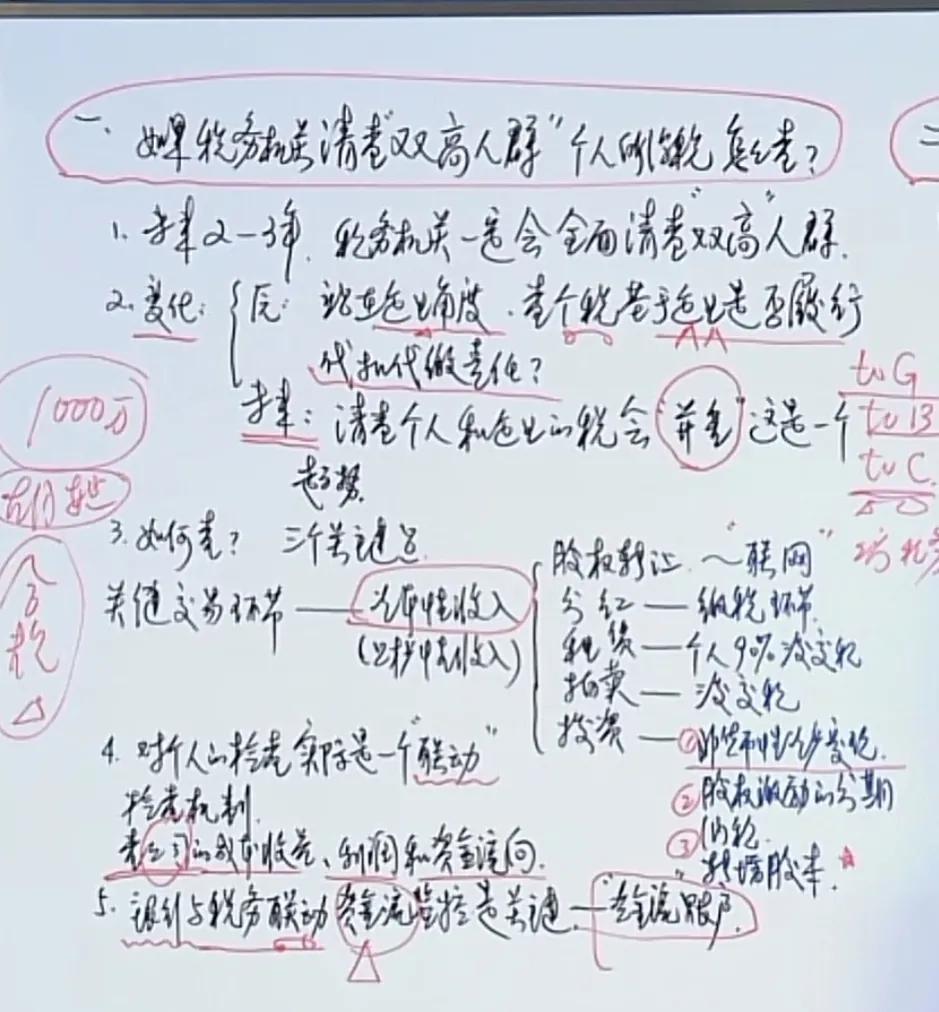 一、如果税务机关清查"双高人群"个人所得税怎么查?
1. 未来2-3年,税务机关一定会全面清查"双高"人群.
2. 变化: 原: 站在企业角度,查个税基于企业是否履行
代扣代缴责任?
未来: 清查个人和企业的税会"并重"这是一个
趋势.
to G
to B
to C.
1000万
3. 如何查? 三个关键点
关键交易环节 — 资本性收入
股权转让 ~ "联网"
分红 — 缴税环节
租赁 — 个人90%没交税
拍卖 — 没交税
投资 — ①
② 股权激励的分期
③
转增股本.
4. 对个人的检查实际是一个"联动"
检查机制
查公司的成本收益、利润和资金流向.
5. 银行与税务联动资金流监控是关键. — "资金流